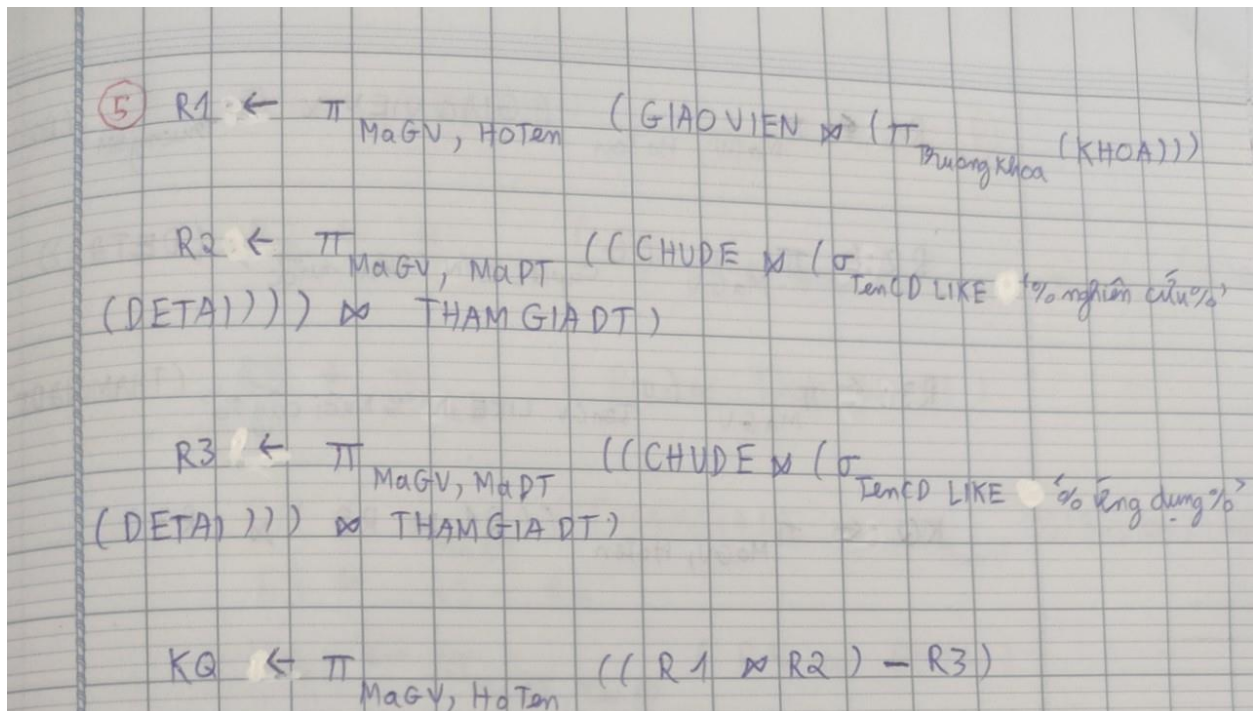 ⑤ R1 ← π MaGV, HoTen (GIAOVIEN ⋈ (π TruongKhoa (KHOA)))
R2 ← π MaGV, MaDT ((CHUDE ⋈ (σ TenCD LIKE '%nghiên cứu%'
(DETAI)))) ⋈ THAMGIADT)
R3 ← π MaGV, MaDT ((CHUDE ⋈ (σ TenCD LIKE '%ứng dụng%'
(DETAI))) ⋈ THAMGIADT)
KQ ← π MaGV, HoTen ((R1 ⋈ R2) – R3)